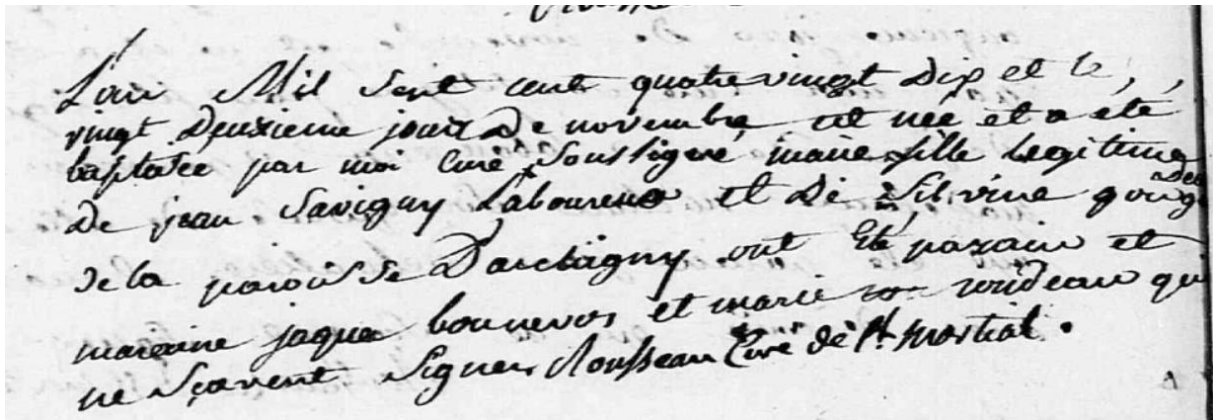 L'an Mil Sept cent quatre vingt Dix et le,
vingt Deuxieme jour De novembre est née et a été
baptisée par moi Curé Soussigné marie fille legitime
De jean Savigny Laboureur et De Silvine
de la paroisse D'archigny ont Eté parain et
maraine jaque bonnevos et marie rondeau qui
ne Sçavent Signer Rousseau Curé de St martial.